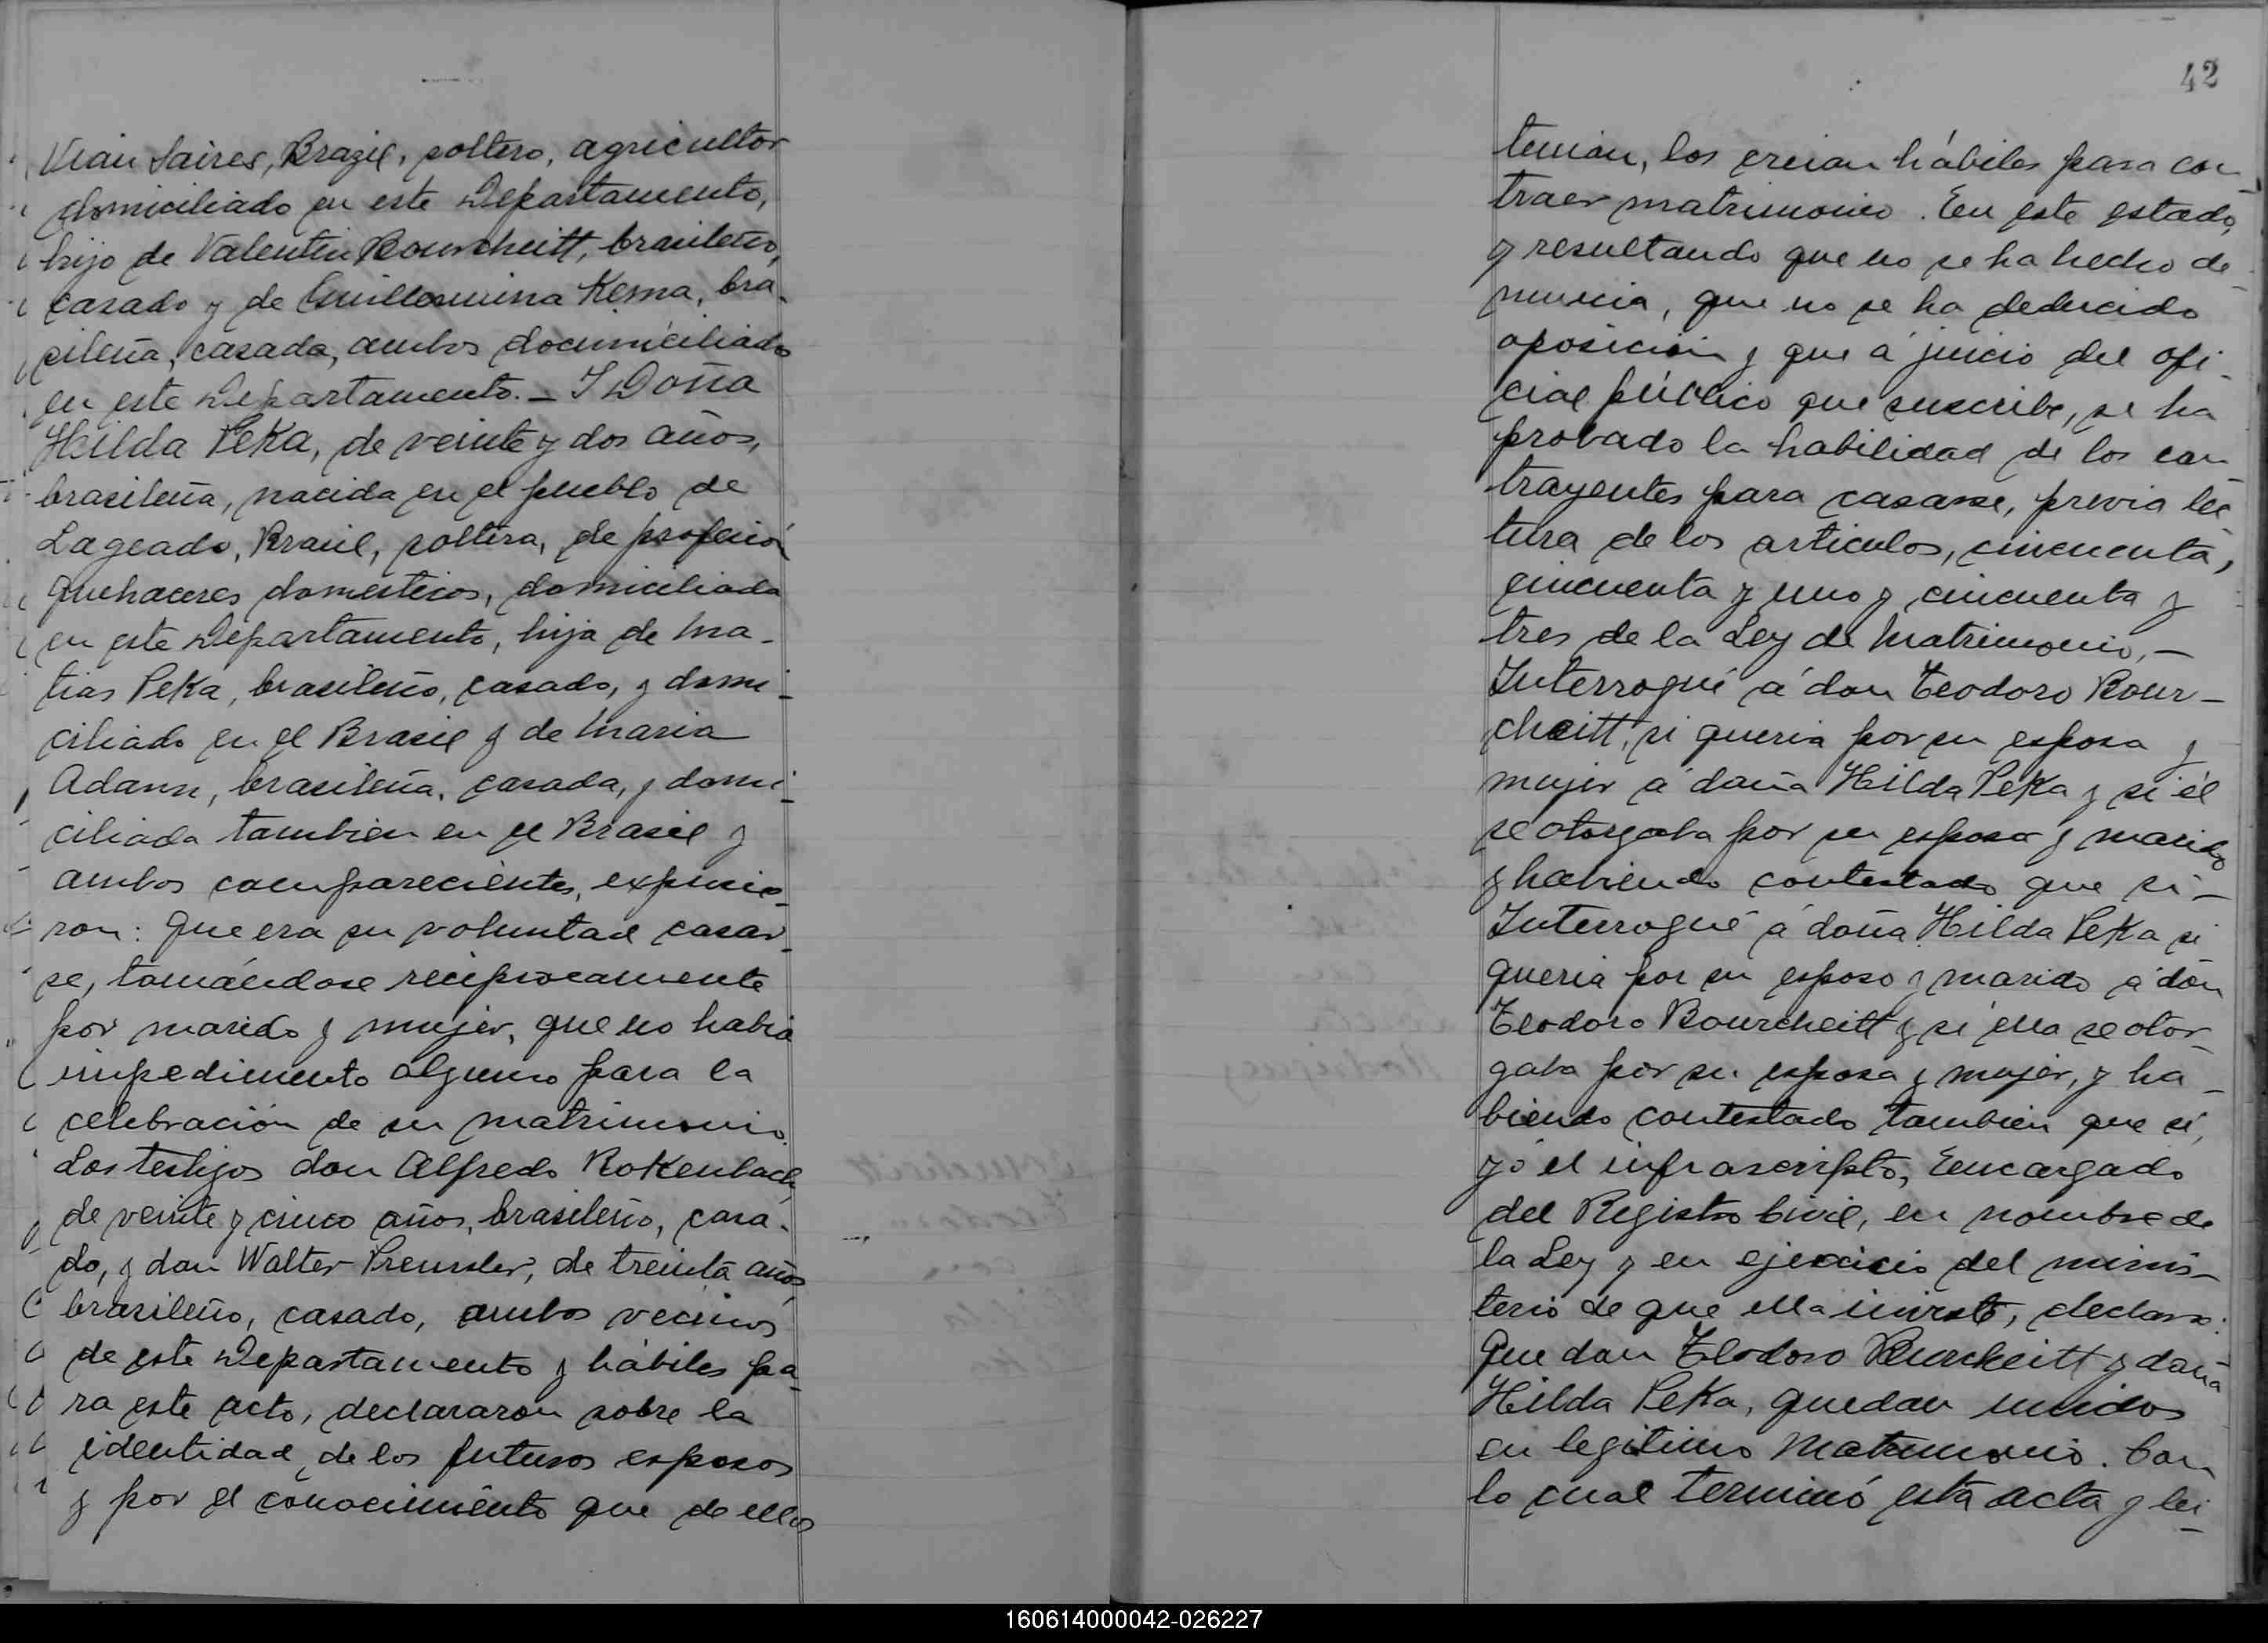 Vian Saires, Brazil, soltero, agricultor
domiciliado en este Departamento,
hijo de Valentin Bourcheitt, brasileño,
casado y de Guillermina Kema, bra-
sileña, casada, ambos documiciliados
en este Departamento. - Y Doña
Hilda Peka, de veinte y dos años,
brasileña, nacida en el pueblo de
Lageado, Brasil, soltera, de profeción
quehaceres domésticos, domiciliada
en este Departamento, hija de Ma-
tias Peka, brasileño, casado, y domi-
ciliado en el Brasil y de Maria
Adams, brasileña, casada, y domi-
ciliada tambien en el Brasil y
ambos comparecientes, expusie-
ron: Que era su voluntad casar-
se, tomándose reciprocamente
por marido y mujer, que no habia
impedimento alguno para la
celebración de su matrimonio.
Los testigos don Alfredo Rokenbach
de veinte y cinco años, brasileño, casa-
do, y don Walter Preussler, de treinta años,
brasileño, casado, ambos vecinos
de este Departamento y hábiles pa-
ra este acto, declararon sobre la
identidad de los futuros esposos
y por el conocimiento que de ellos
42
tenian, los creian hábiles para con-
traer matrimonio. En este estado,
y resultando que no se ha hecho de-
nuncia, que no se ha deducido
oposición y que á juicio del ofi-
cial público que suscribe, se ha
probado la habilidad de los con
trayentes para casarse, previa lec
tura de los articulos, cincuenta,
cincuenta y uno y cincuenta y
tres de la Ley de Matrimonio, -
Interrogué á don Teodoro Bour-
cheitt, si queria por su esposa y
mujer á doña Hilda Peka y si él
se otorgaba por su esposo y marido
y habiendo contestado que si -
Interrogué á doña Hilda Peka si
queria por su esposo y marido á don
Teodoro Bourcheitt y si ella se otor-
gaba por su esposa y mujer, y ha-
biendo contestado tambien que sí,
yó el infrascripto, Encargado
del Registro Civil, en nombre de
la Ley y en ejercicio del minis-
terio de que ella inviste, declaro:
Que don Teodoro Bourcheitt y doña
Hilda Peka, quedan unidos
en legitimo Matrimonio. Con
lo cual terminó esta acta y lei-
160614000042-026227